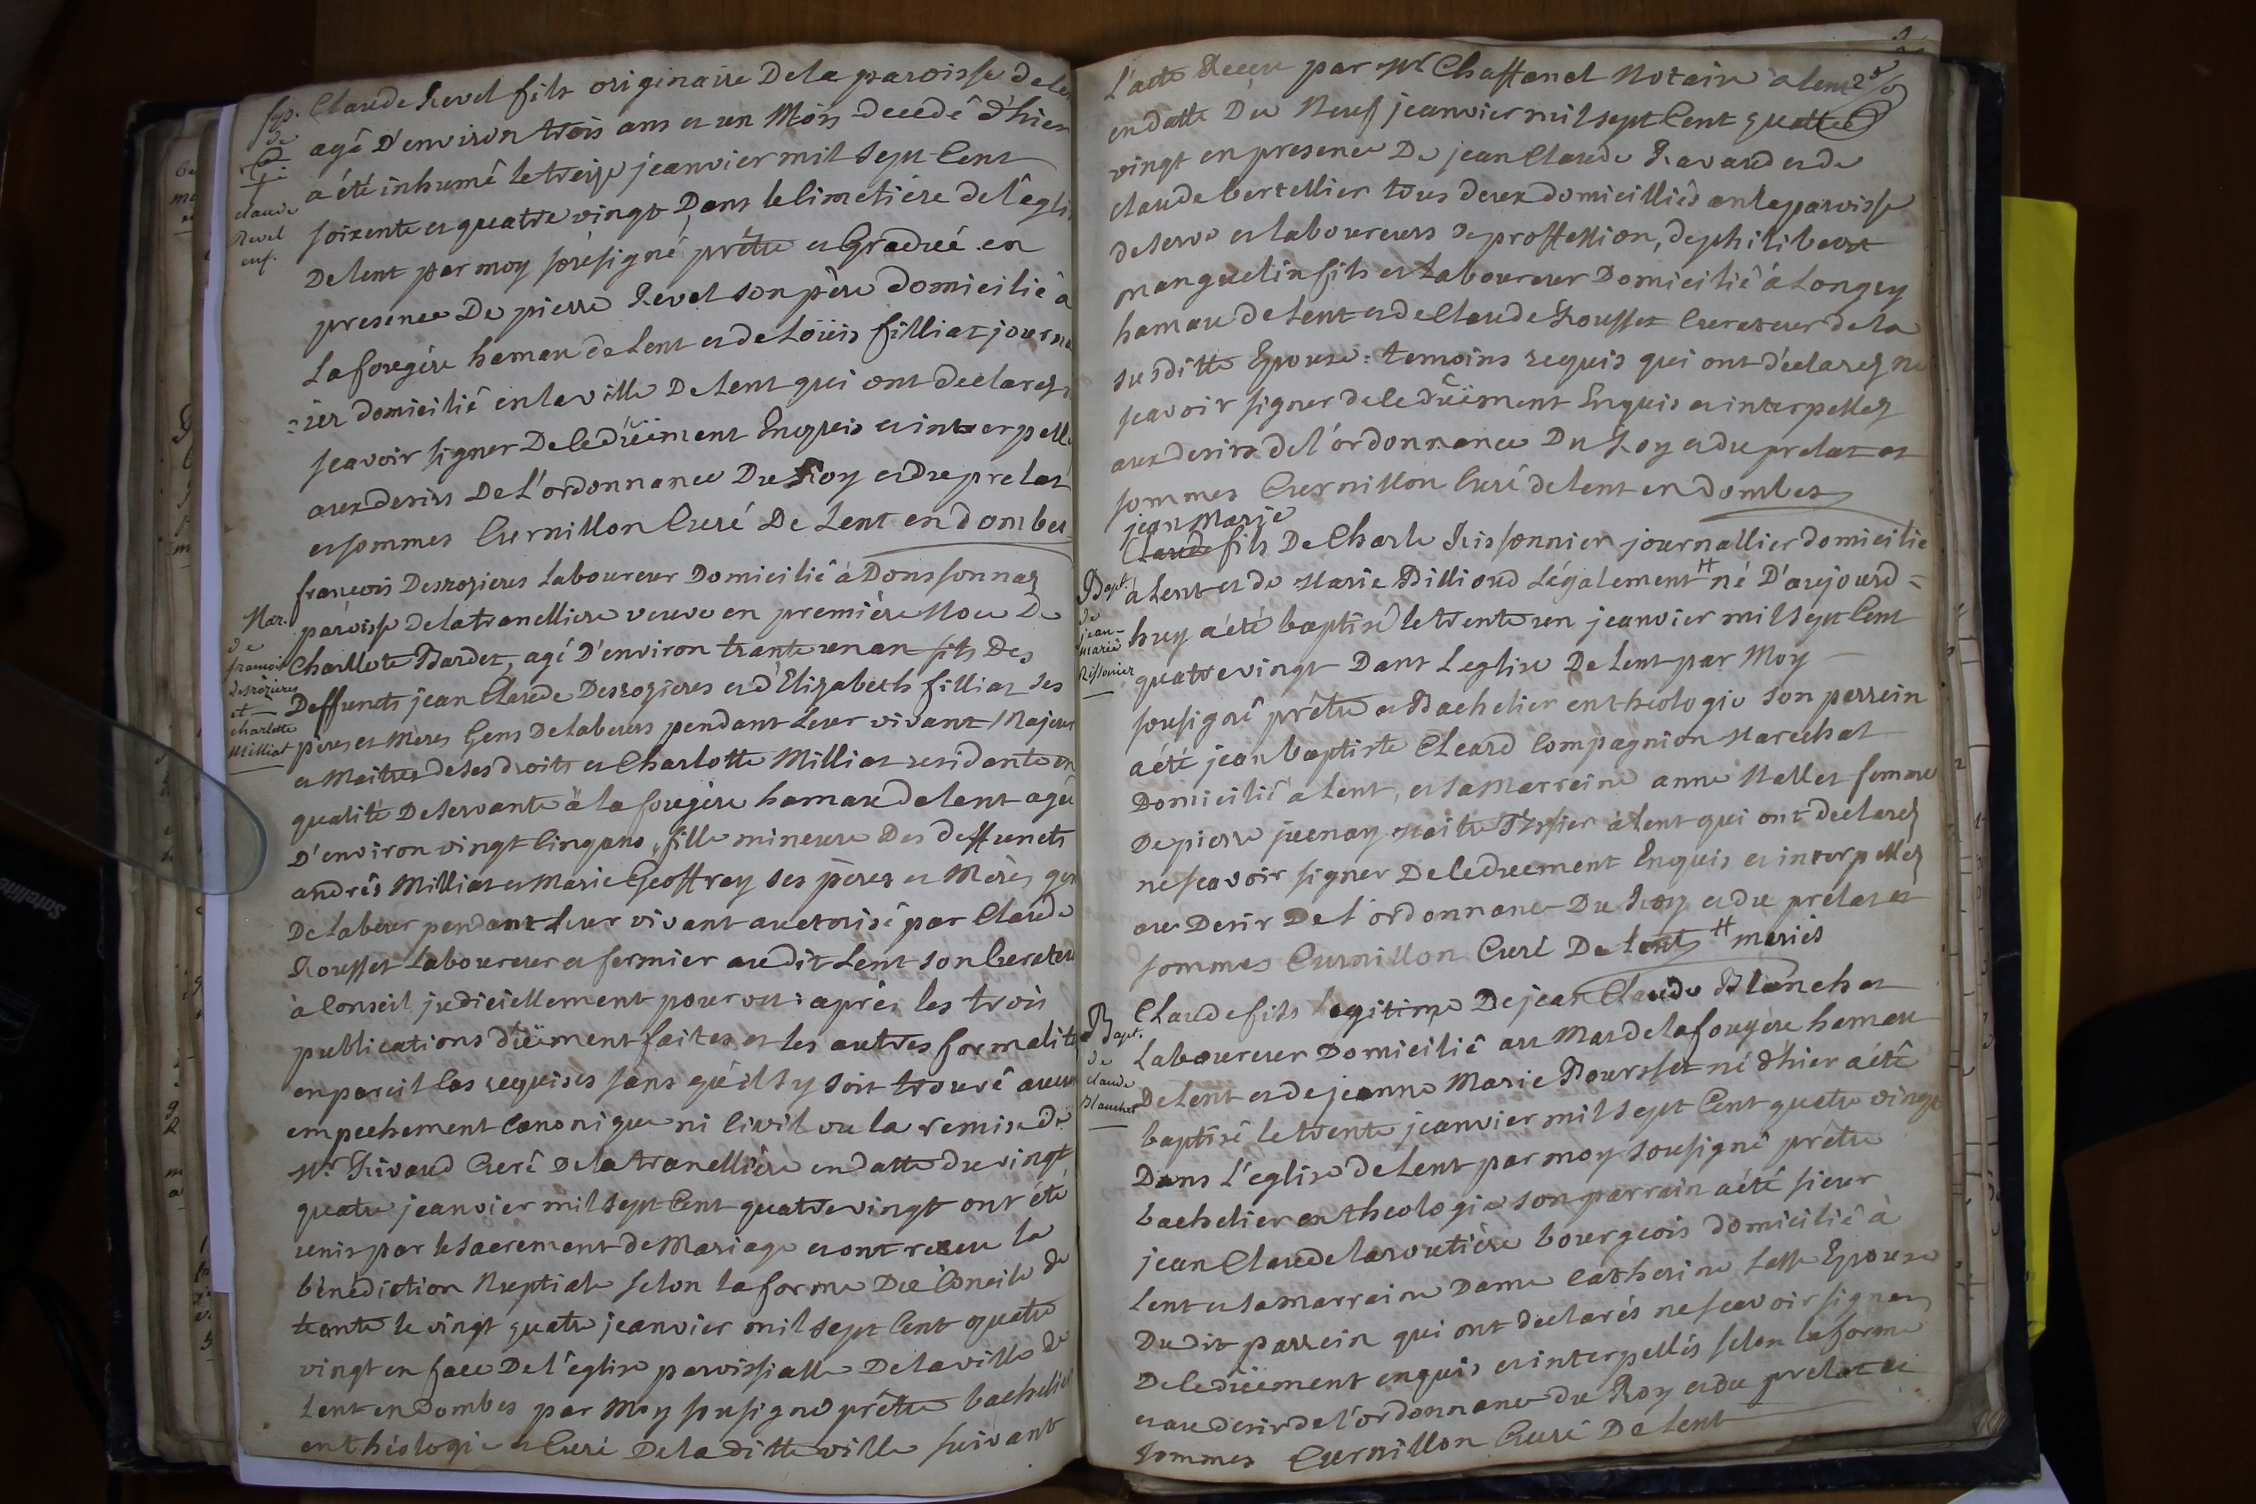 Sep.
de
Claude
Revel
enf.
Claude Revel fils originaire De la paroisse de
agé D'environ trois ans et un Mois decedé d'hier
a été inhumé le treize jeanvier mil sept Cent
soixente et quatre vingt Dans le Cimetière de l'égli
De lent par moy sousigné prêtre et Gradué en
presence De pierre Revel son père domicilié à
La fougère hameau de Lent et de Loüis filliat journa
=ier domicilié en la ville De Lent qui ont declarez
sçavoir signer De ce düëment Enquis et interpellé
aux desirs De L'ordonnance Du Roy et du prelat
et sommes Curnillon Curé De Lent en dombes
Mar.
de
françois
desrozieres
et
charlotte
Milliat
françois Desrozieres Laboureur Domicilié à Donssonnaz
paroisse de la tranelliere veuve en première Noce De
Charllote Bardet, agé D'environ trante un an fils Des
Deffuncts jean Claude Desrozieres et d'Elizabeth filliat ses
pères et Mères Gens De labeurs pendant leur vivant Majeur
et Maitre de ses droits et Charlotte Milliat residante en
qualité De servante à la fougère hameau de lent agée
D'environ vingt Cinq ans, fille mineure Des deffuncts
andrés Milliat et Marie Geoffray ses pères et Mères gens
De Labeur pendant Leur vivant auctorisé par Claude
Rousset Laboureur et fermier au dit Lent son Curateur
à Conseil judiciellement pourvu: après les trois
publications düëment faites et les autres formalité
en pareil Cas requises sans qu'il s'y soit trouvé aucun
empechement Canonique ni Civil vu la remise de
Mr. Rivaud Curé De la tranellière en datte du vingt
quatre jeanvier mil sept Cent quatre vingt ont été
unis par le sacrement de Mariage et ont reçeu la
bénédiction Nuptiale selon la forme Du Concile de
trante le vingt quatre jeanvier mil sept Cent quatre
vingt en face De l'église paroissialle De la ville de
Lent en dombes par Moy sousigné prêtre bachelier
en théologie et Curé De la ditte ville suivant
L'acte Reçeu par Mr Chaffanel Notaire a lent
en datte Du Neuf jeanvier mil sept Cent quattre
vingt en presence De jean Claude Ravaud et de
claude bertellier tous deux domicilliés en la paroisse
de serva et laboureurs de proffession, de philibert
manguelin fils et Laboureur Domicilié à Longey
hamau de Lent et de Claude Rousset Curateur de la
susditte Epouse: temoins requis qui ont déclarez ne
sçavoir signer de ce düëment Enquis et interpellez
aux desirs de l'ordonnance Du Roy et du prelat et
sommes Curnillon Curé de lent en dombes
Bapt.
de
jean-
marie
Rissonier
jean Marie
Claude fils De Charle Rissonnier journallier domicilié
à Lent et de Marie Billioud Légalement # né D'aujourd=
huy a été baptisé le trente un jeanvier mil sept Cent
quatre vingt Dans L'eglise De Lent par Moy
sousigné prêtre et Bachelier en theologie son perrein
a été jean baptiste Cleard Compagnion Marechal
Domicilié a Lent, et sa Marreine anne Mallet femme
De pierre juenay Maitre Tissier à Lent qui ont declarez
ne sçavoir signer De ce duement Enquis et interpellez
au Desir De l'ordonnance Du Roy et du prélat et
sommes Curnillon Curé De Lent # mariés
Bapt.
de
claude
Blanchet
Claude fils legitime De jean Claude Blanchet
Laboureur Domicilié au Mas de la fougère hameau
De Lent et de jeanne Marie Boursset né d'hier a été
baptisé le trente jeanvier mil sept Cent quatre vingt
Dans L'église de Lent par moy sousigné prêtre
bachelier en theologie son parrain a été sieur
jean Claude laroutière bourgeois domicilié à
Lent et sa marraine Dame Catherine Epouse
Du dit parrein qui ont declarés ne sçavoir signer
De ce düement enquis et interpellés selon la forme
et au desir de l'ordonnance du Roy et du prelat et
sommes Curnillon Curé De Lent